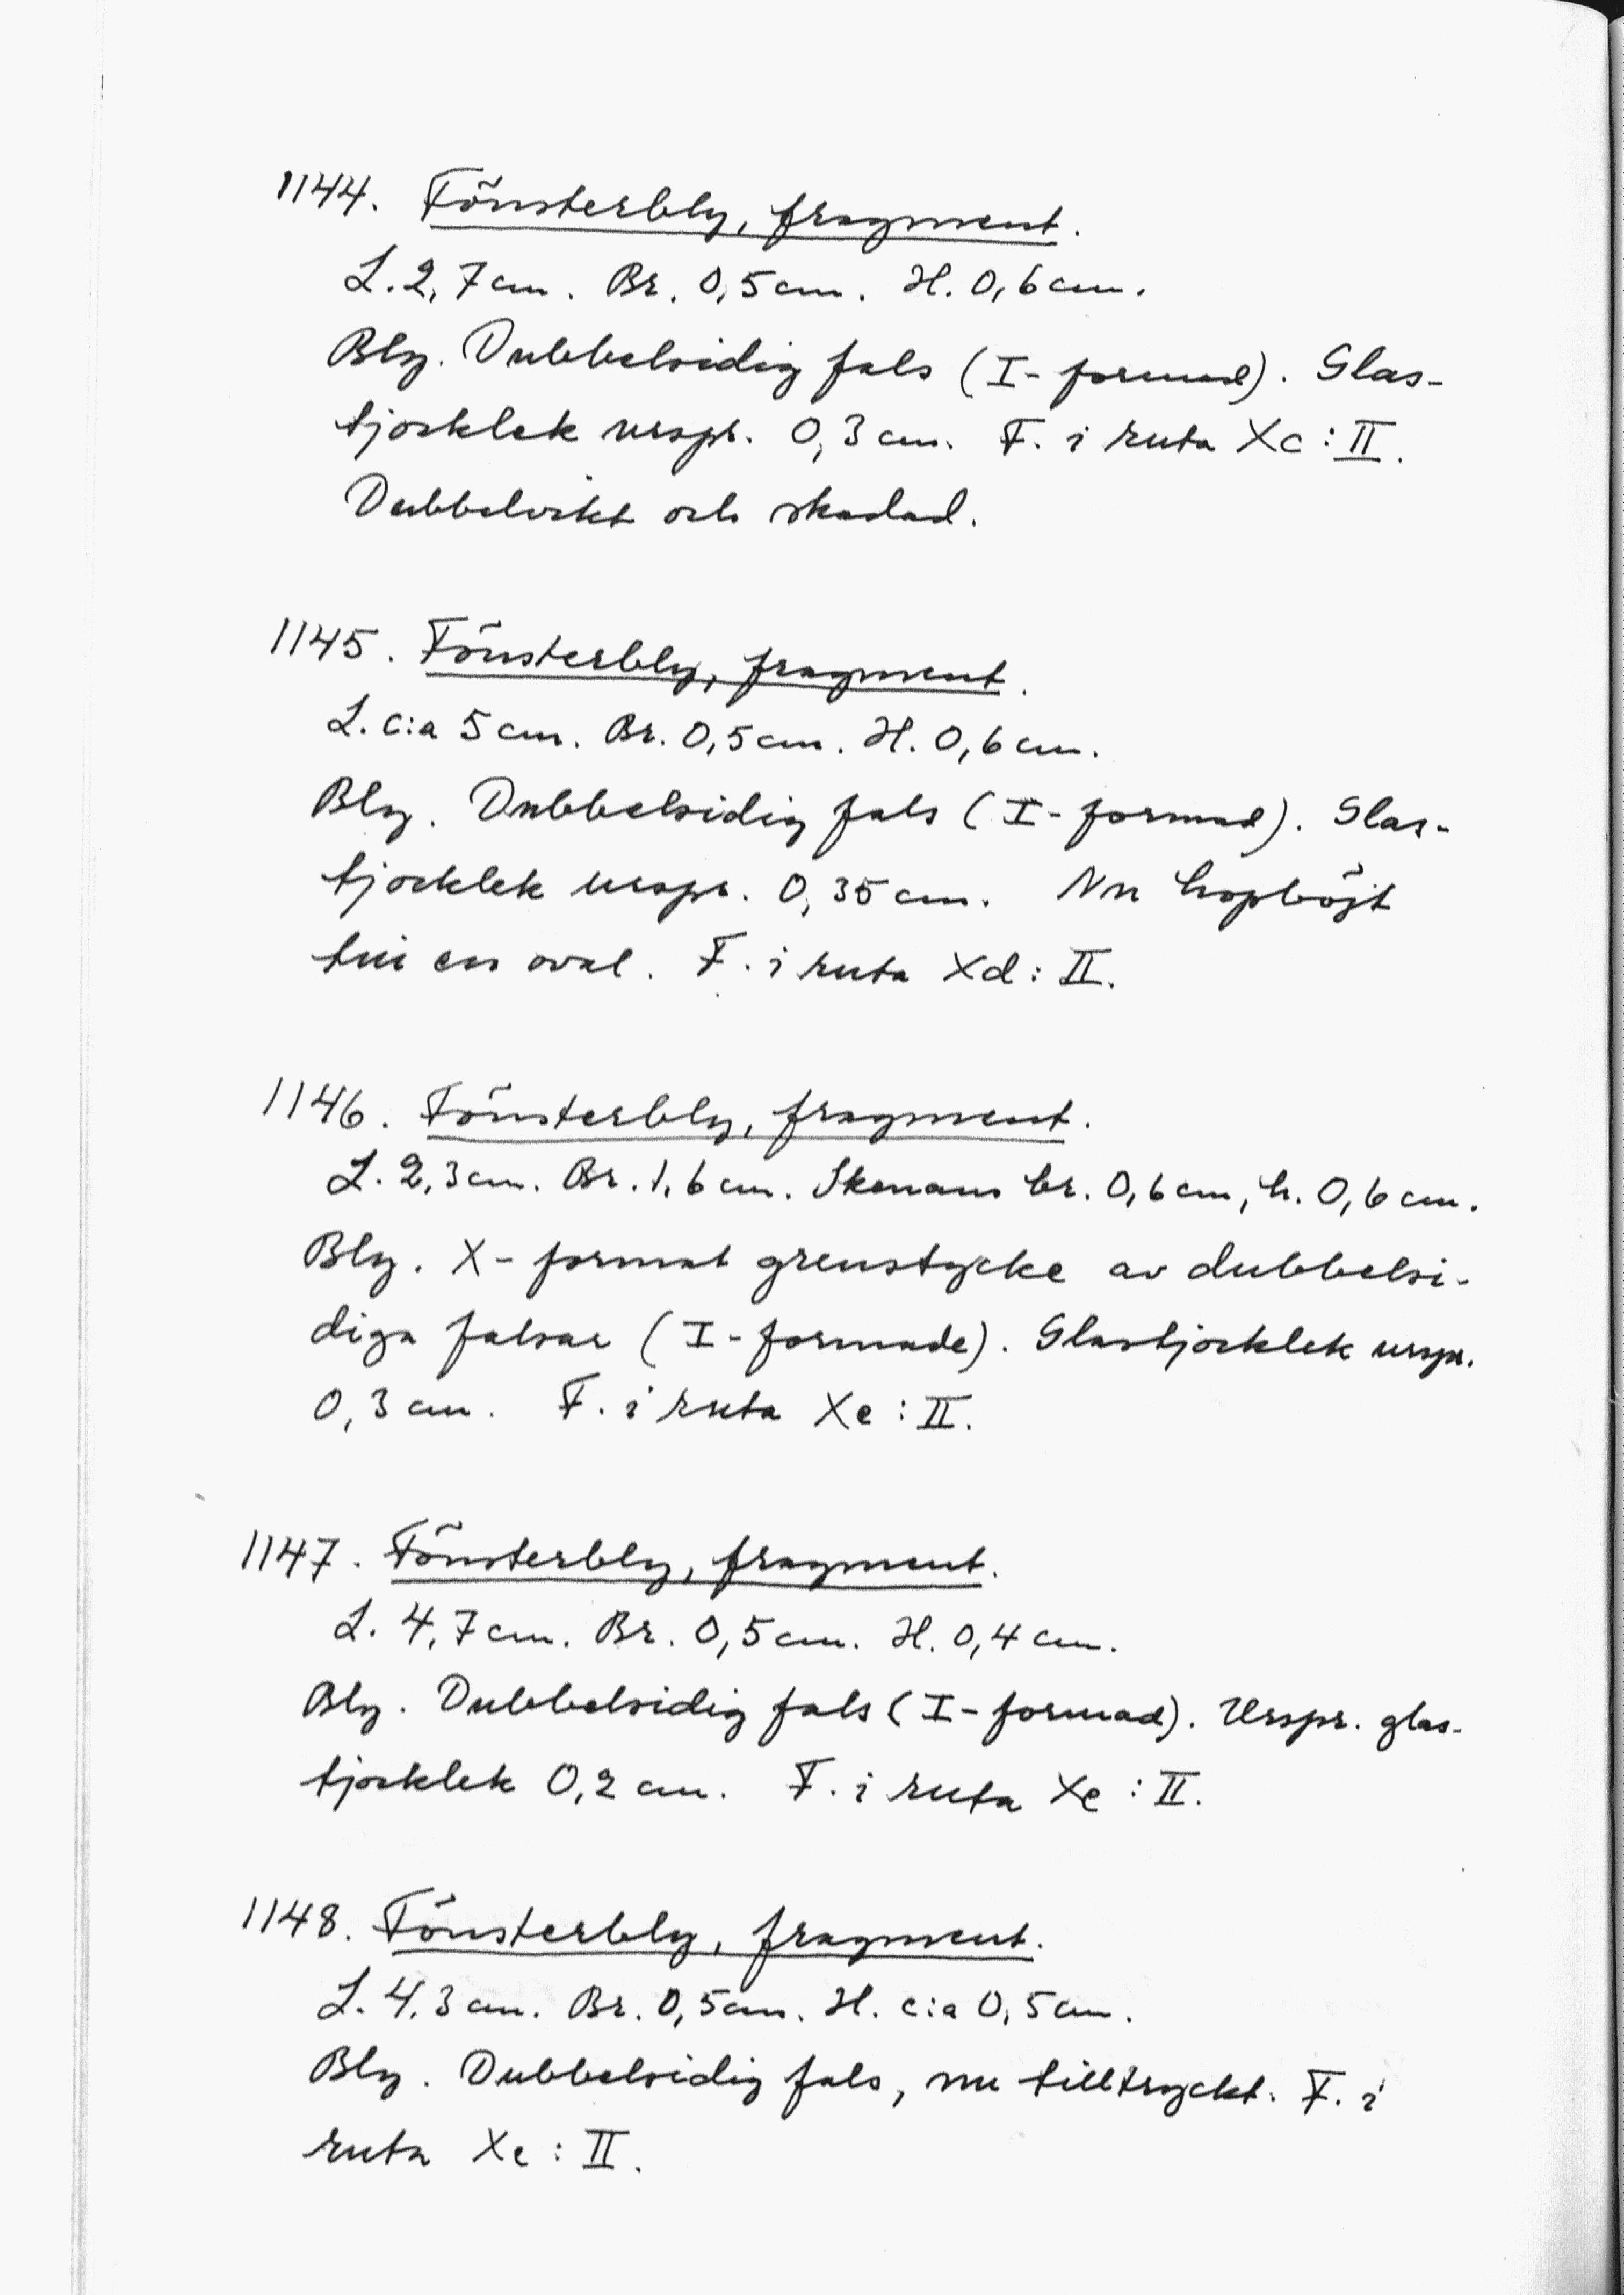 1144. Fönsterbly, fragment.
L. 2,7 cm. Br. 0,5 cm. H. 0,6 cm.
Bly. Dubbelsidig fals (I-formad). Glas-
tjocklek urspr. 0,3 cm. F. i ruta Xc:II.
Dubbelvikt och skadad.
1145. Fönsterbly, fragment.
L. c:a 5 cm. Br. 0,5 cm. H. 0,6 cm.
Bly. Dubbelsidig fals (I-formad). Glas-
tjocklek urspr. 0,35 cm. Nu hopböjt
till en oval. F. i ruta Xd:II.
1146. Fönsterbly, fragment.
L. 2,3 cm. Br. 1,6 cm. Skenans br. 0,6 cm, h. 0,6 cm.
Bly. X-format grenstycke av dubbelsi-
diga falsar (I-formade). Glastjocklek urspr.
0,3 cm. F. i ruta Xe:II.
1147. Fönsterbly, fragment.
L. 4,7 cm. Br. 0,5 cm. H. 0,4 cm.
Bly. Dubbelsidig fals (I-formad). Urspr. glas-
tjocklek 0,2 cm. F. i ruta Xe:II.
1148. Fönsterbly, fragment.
L. 4,3 cm. Br. 0,5 cm. H. c:a 0,5 cm.
Bly. Dubbelsidig fals, nu tilltryckt. F. i
ruta Xe:II.